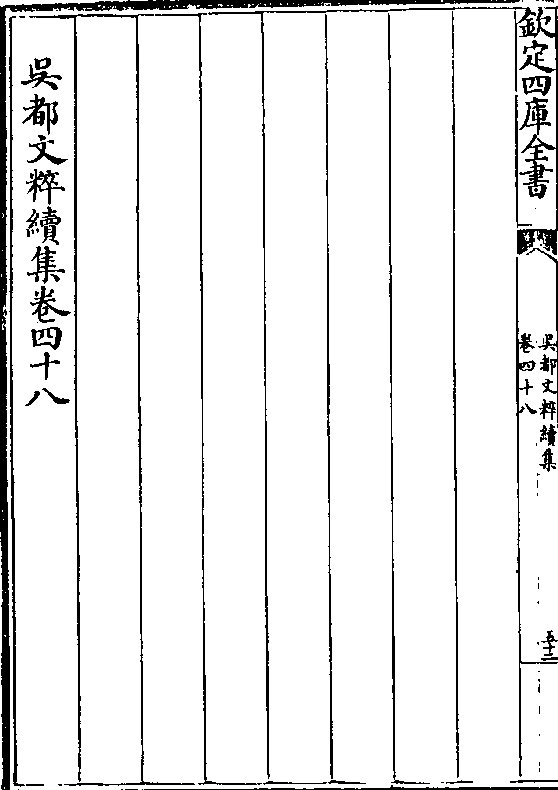 欽定四庫全書
吳都文粹續集
卷四十八
五十二
吳都文粹續集卷四十八